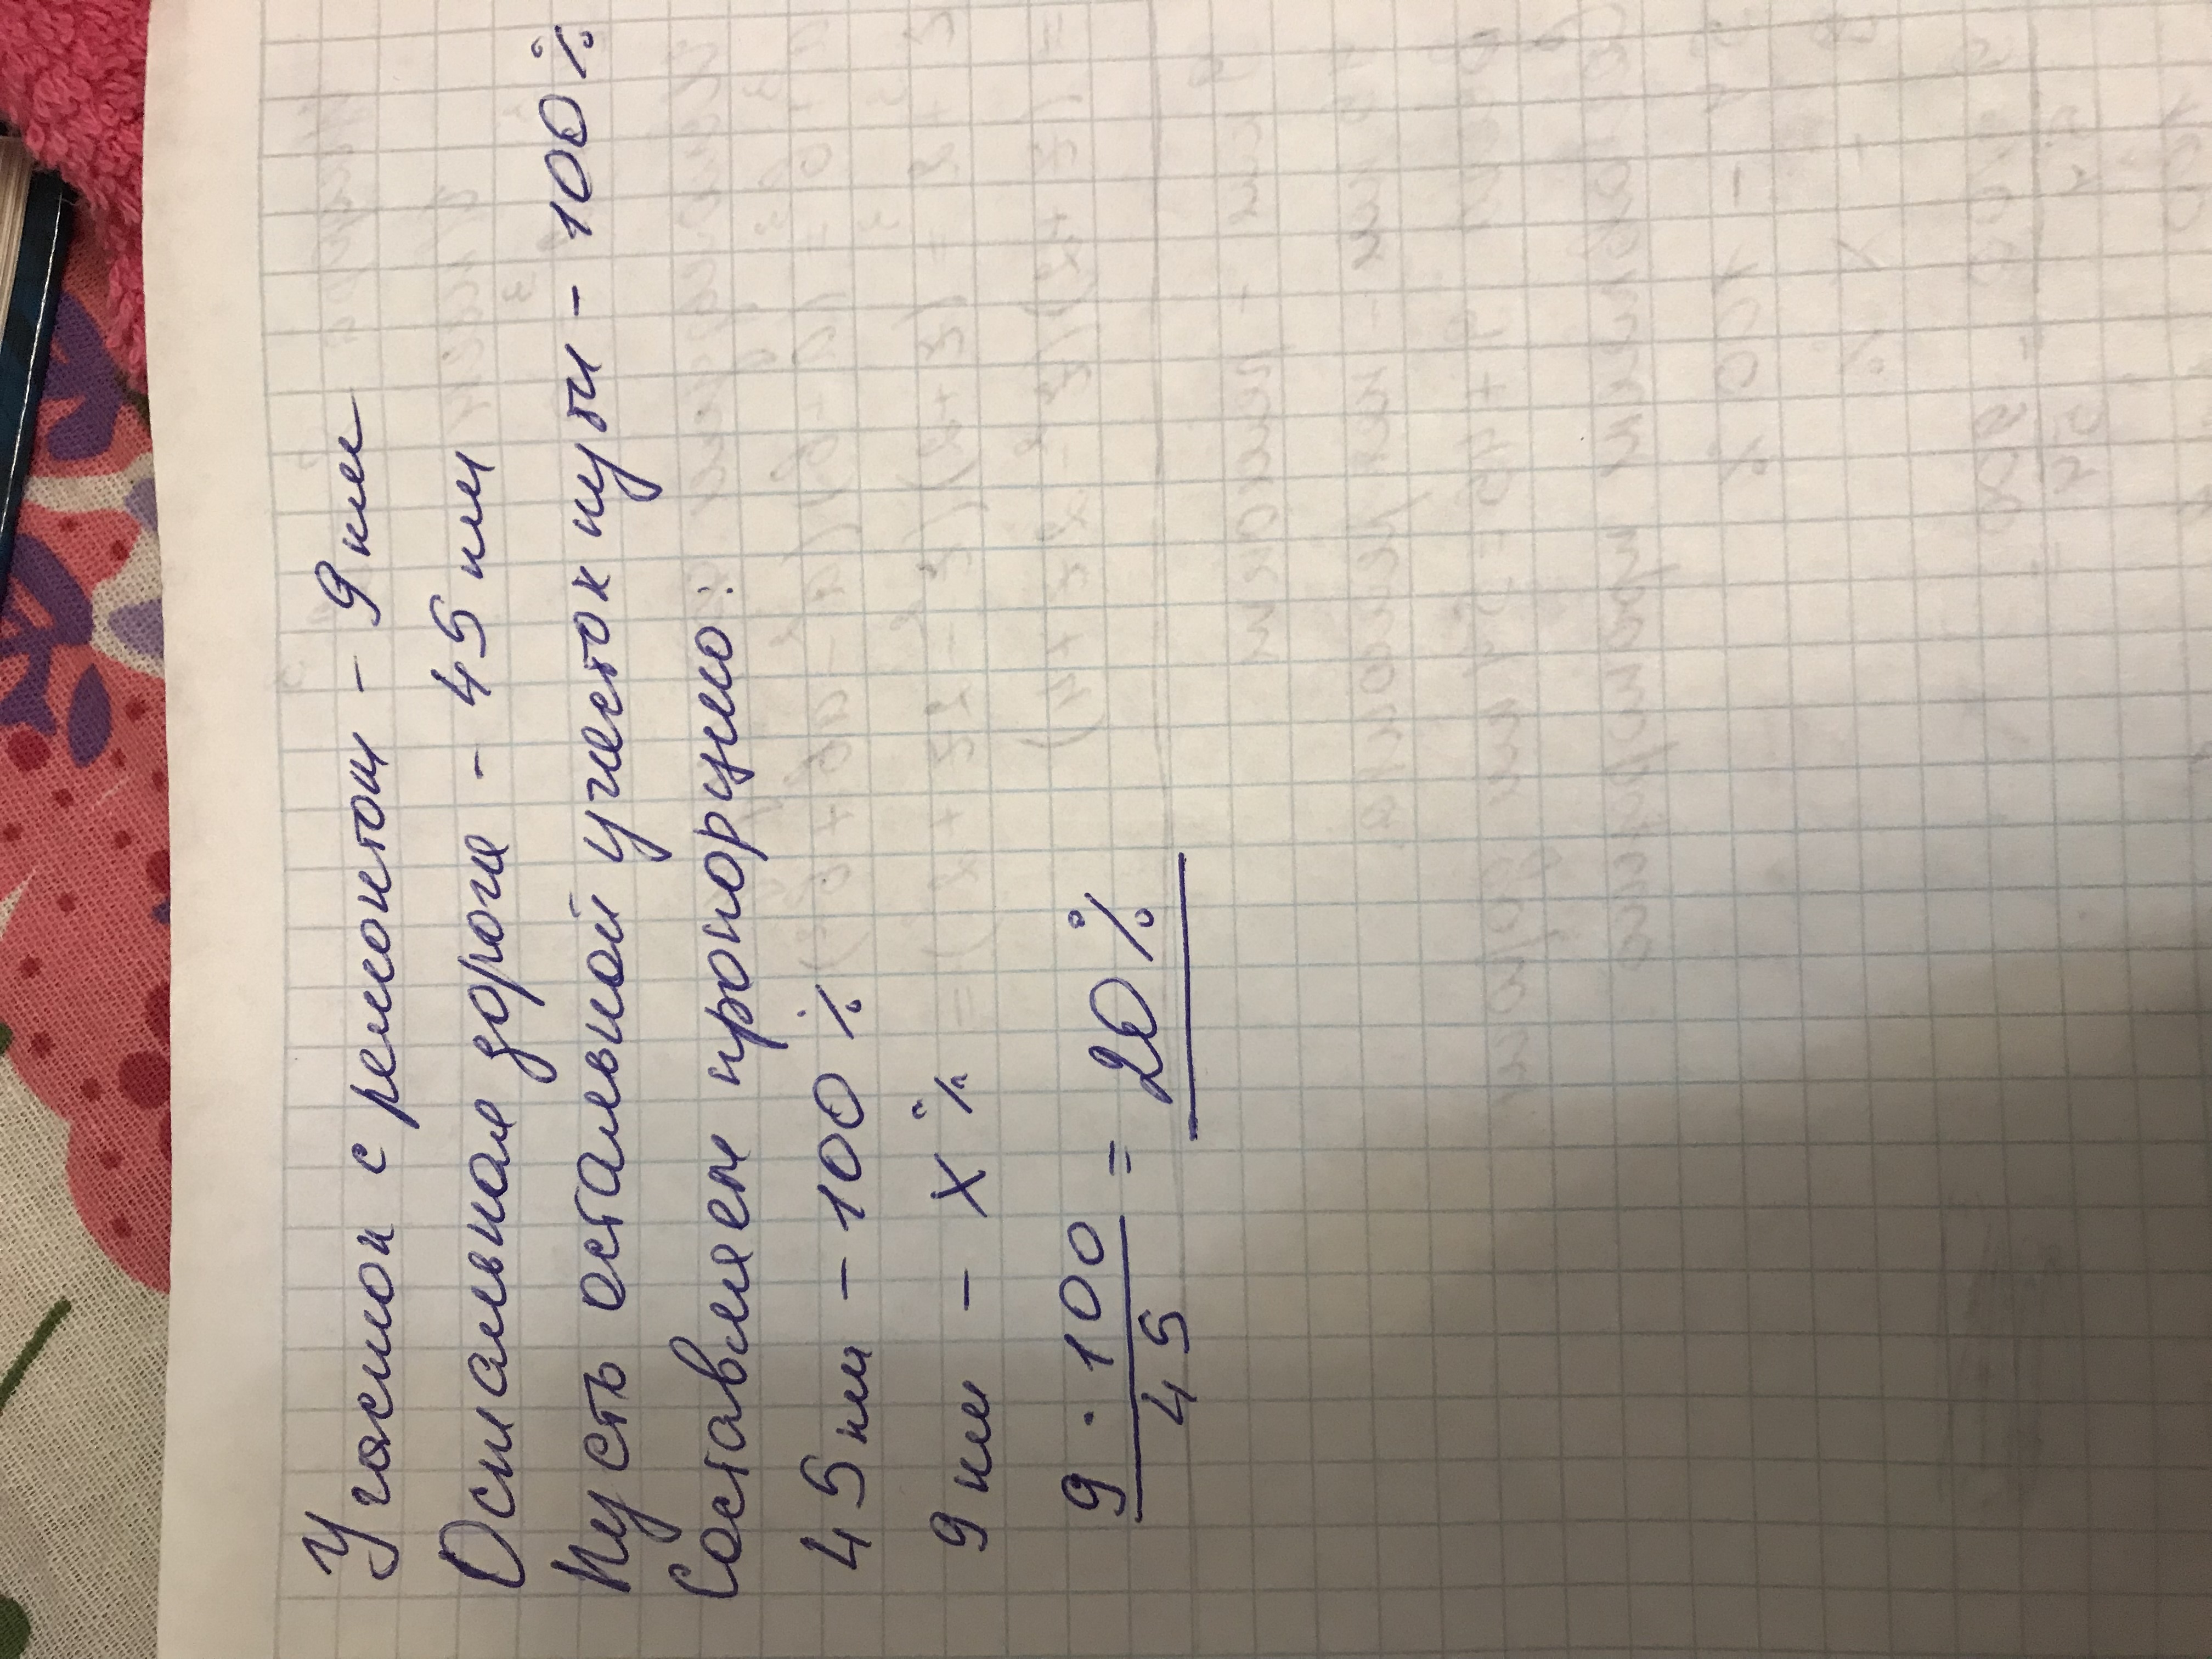 Участок с ремонтом - 9 км
Остальная дорога - 45 км
Пусть остальной участок пути - 100%
Составляем пропорцию:
45 км - 100%
9 км - x%
9 · 100 / 45 = 20%